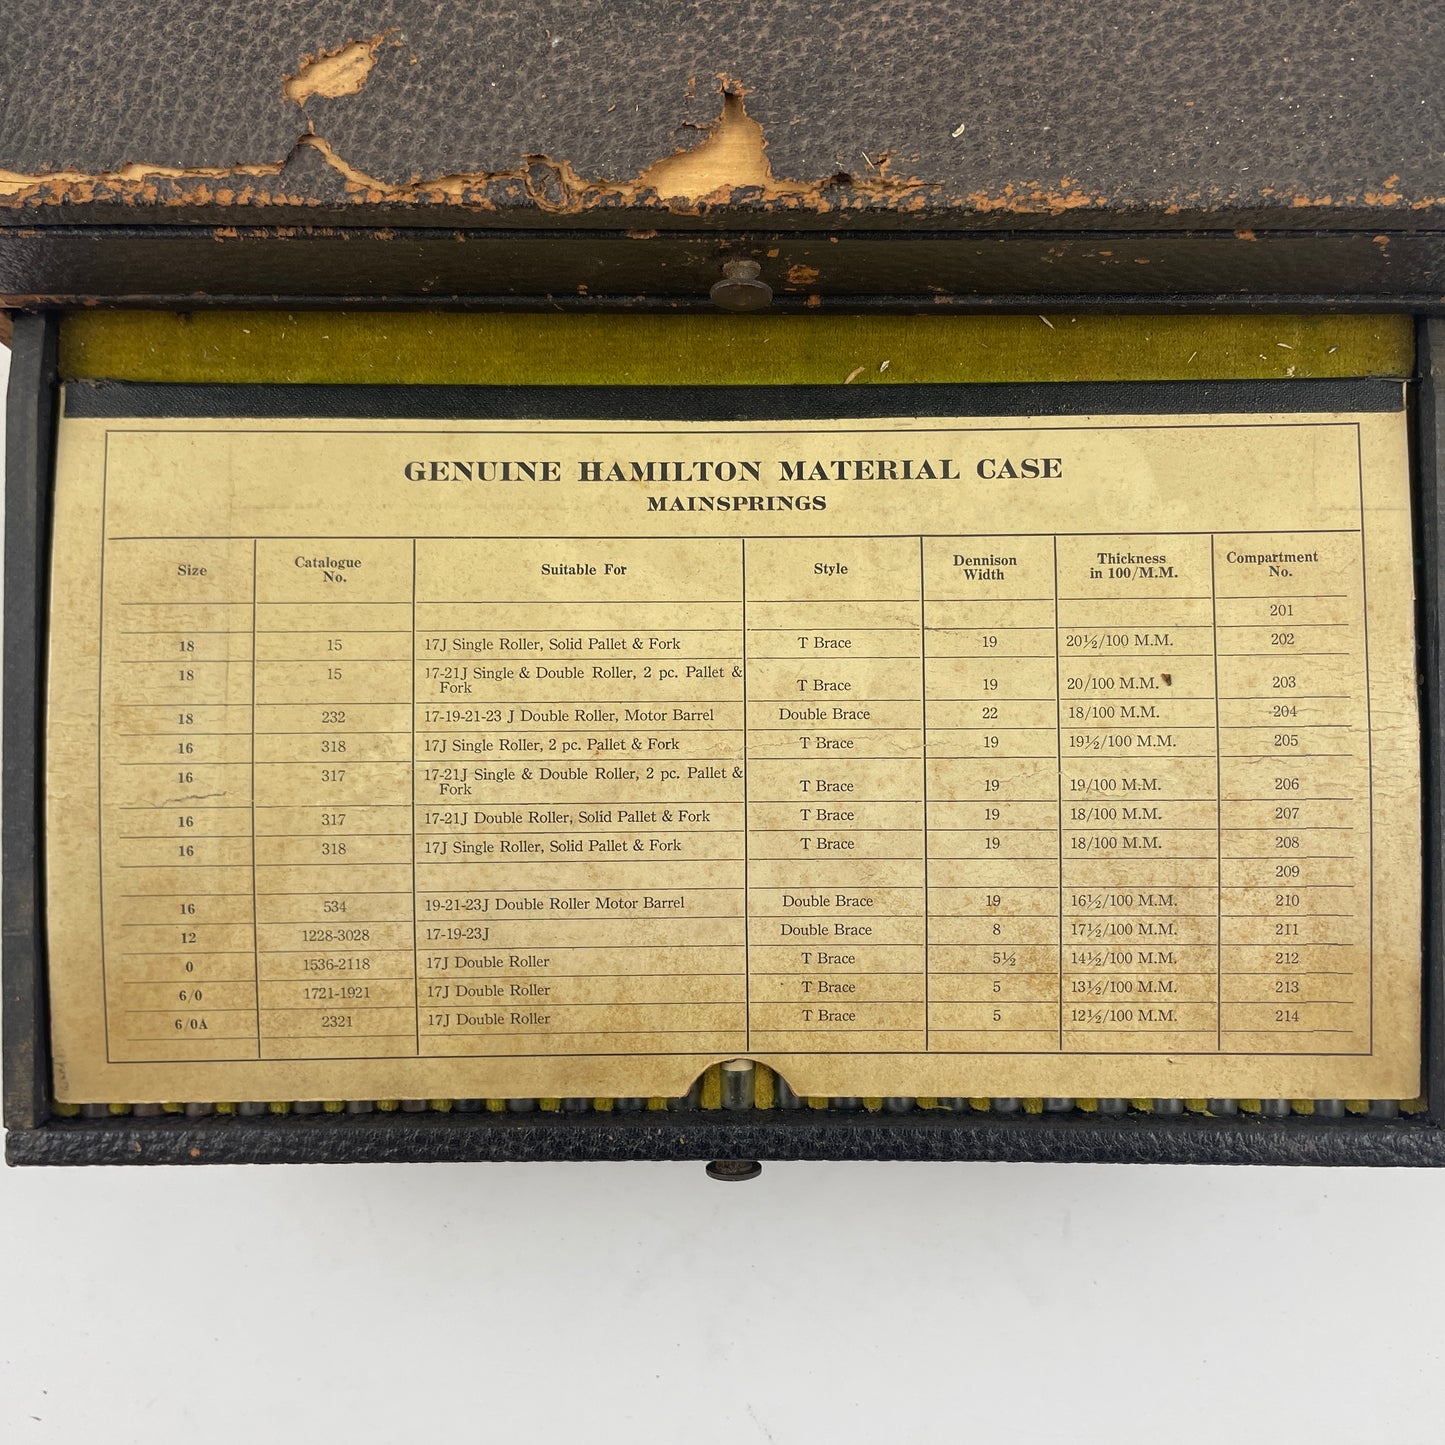 GENUINE HAMILTON MATERIAL CASE
MAINSPRINGS
Size Catalogue No. Suitable For Style Dennison Width Thickness in 100/M.M. Compartment No.
201
18 15 17J Single Roller, Solid Pallet & Fork T Brace 19 20½/100 M.M. 202
18 15 17-21J Single & Double Roller, 2 pc. Pallet & Fork T Brace 19 20/100 M.M. 203
18 232 17-19-21-23 J Double Roller, Motor Barrel Double Brace 22 18/100 M.M. 204
16 318 17J Single Roller, 2 pc. Pallet & Fork T Brace 19 19½/100 M.M. 205
16 317 17-21J Single & Double Roller, 2 pc. Pallet & Fork T Brace 19 19/100 M.M. 206
16 317 17-21J Double Roller, Solid Pallet & Fork T Brace 19 18/100 M.M. 207
16 318 17J Single Roller, Solid Pallet & Fork T Brace 19 18/100 M.M. 208
209
16 534 19-21-23J Double Roller Motor Barrel Double Brace 19 16½/100 M.M. 210
12 1228-3028 17-19-23J Double Brace 8 17½/100 M.M. 211
0 1536-2118 17J Double Roller T Brace 5½ 14½/100 M.M. 212
6/0 1721-1921 17J Double Roller T Brace 5 13½/100 M.M. 213
6/0A 2321 17J Double Roller T Brace 5 12½/100 M.M. 214